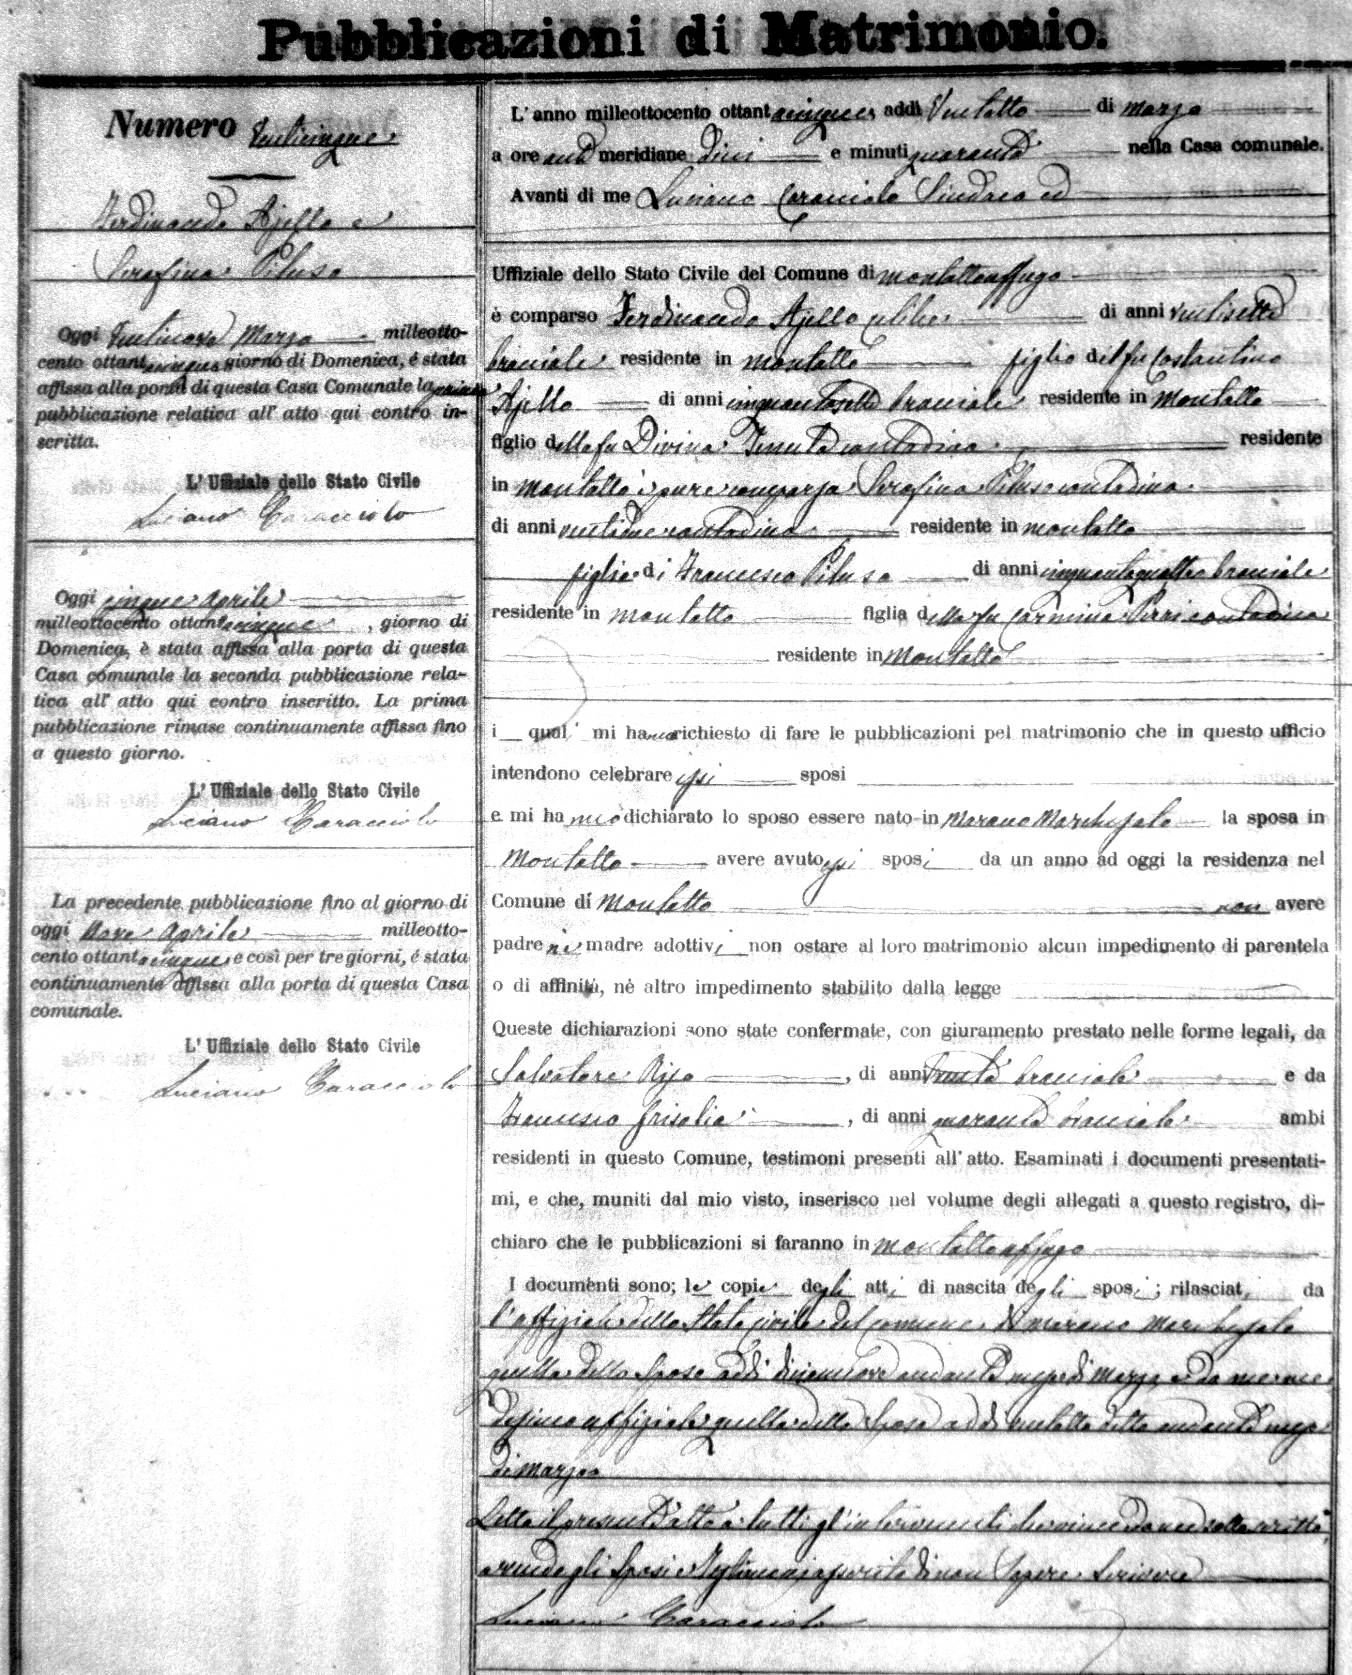 Pubblicazioni di Matrimonio.
Numero Venticinque
Ferdinando Ajello e
Serafina Piluso
Oggi Ventinove Marzo milleotto-
cento ottantacinque giorno di Domenica, é stata
affissa alla porta di questa Casa Comunale la prima
pubblicazione relativa all' atto qui contro in-
scritta.
L' Uffiziale dello Stato Civile
Luciano Caracciolo
Oggi cinque Aprile
milleottocento ottantacinque, giorno di
Domenica, è stata affissa alla porta di questa
Casa comunale la seconda pubblicazione rela-
tiva all' atto qui contro inscritto. La prima
pubblicazione rimase continuamente affissa fino
a questo giorno.
L' Uffiziale dello Stato Civile
Luciano Caracciolo
La precedente pubblicazione fino al giorno di
oggi Nove Aprile milleotto-
cento ottantacinque e così per tre giorni, é stata
continuamente affissa alla porta di questa Casa
comunale.
L' Uffiziale dello Stato Civile
Luciano Caracciolo
L'anno milleottocento ottantacinque, addì Ventotto di marzo
a ore anti meridiane dieci e minuti quaranta nella Casa comunale.
Avanti di me Luciano Caracciolo Sindaco ed
Uffiziale dello Stato Civile del Comune di Montaltouffugo
è comparso Ferdinando Ajello celibe di anni ventisette
bracciale residente in Montalto figlio del fu Costantino
Ajello di anni cinquantasette bracciale residente in Montalto
figlio della fu Divina Tenuta contadina residente
in Montalto è pure comparsa Serafina Piluso contadina
di anni ventidue contadina residente in Montalto
figlia di Francesco Piluso di anni cinquantaquattro bracciale
residente in Montalto figlia della fu Carmina Perri contadina
residente in Montalto
i quali mi hanno richiesto di fare le pubblicazioni pel matrimonio che in questo ufficio
intendono celebrare essi sposi
e mi hanno dichiarato lo sposo essere nato in Marano Marchesato la sposa in
Montalto avere avuto essi sposi da un anno ad oggi la residenza nel
Comune di Montalto non avere
padre nè madre adottivi non ostare al loro matrimonio alcun impedimento di parentela
o di affinità, né altro impedimento stabilito dalla legge
Queste dichiarazioni sono state confermate, con giuramento prestato nelle forme legali, da
Salvatore, di anni trenta bracciale e da
Francesco Grisolia, di anni quaranta bracciale ambi
residenti in questo Comune, testimoni presenti all' atto. Esaminati i documenti presentati-
mi, e che, muniti dal mio visto, inserisco nel volume degli allegati a questo registro, di-
chiaro che le pubblicazioni si faranno in Montaltouffugo
I documenti sono; le copie degli atti di nascita degli sposi; rilasciati da
l'uffiziale dello Stato civile del comune di Marano Marchesato
quella dello sposo addì diciannove andante mese di Marzo, e da me me
desimo uffiziale quella della sposa addì ventotto detto andante mese
di Marzo
Letto il presente atto a tutti gl'intervenuti sotto scritto
avendo gli sposi e testimoni asserito di non sapere scrivere
Luciano Caracciolo